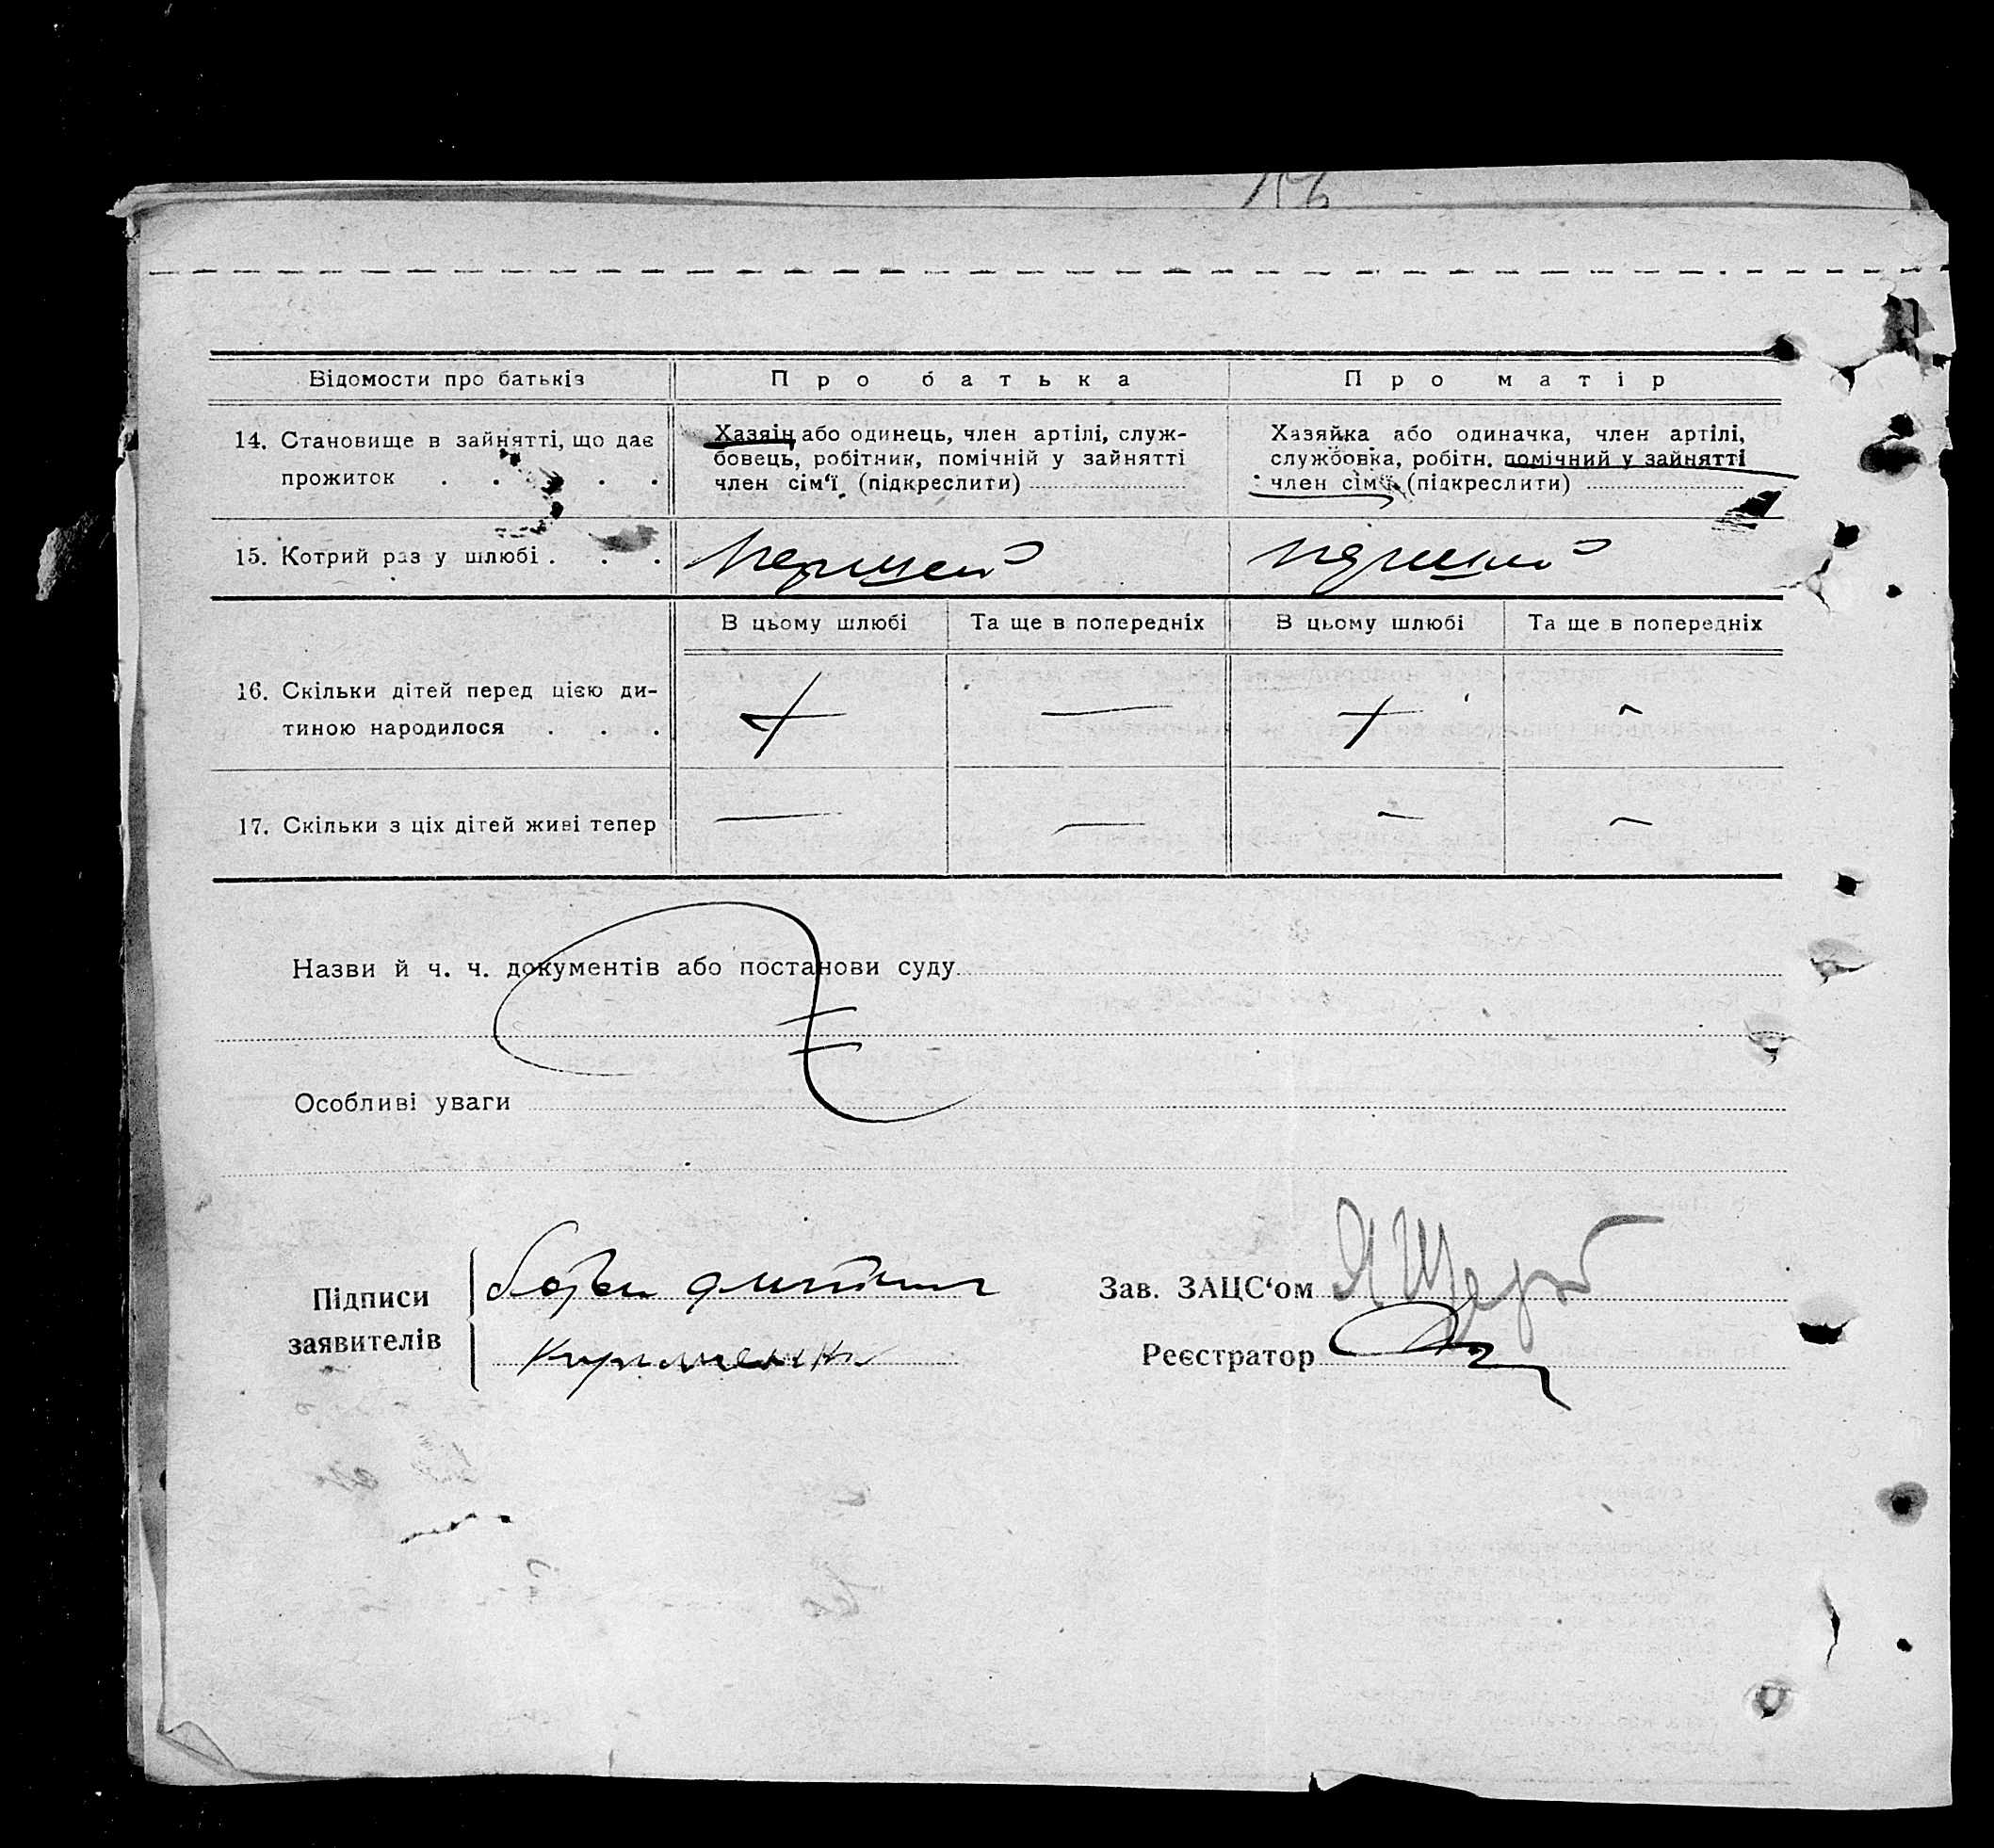 156
Відомости про батьків
Про батька
Про матір
14. Становище в зайнятті, що дає
прожиток . . . . .
Хазяїн або одинець, член артілі, служ-
бовець, робітник, помічній у зайнятті
член сім'ї (підкреслити)
Хазяйка або одиначка, член артілі,
службовка, робітн. помічний у зайнятті
член сім'ї (підкреслити)
15. Котрий раз у шлюбі . . .
перший
перший
В цьому шлюбі
Та ще в попередніх
В цьому шлюбі
Та ще в попередніх
16. Скільки дітей перед цією ди-
тиною народилося . . .
+ — + -
17. Скільки з ціх дітей живі тепер
— — - -
Назви й ч. ч. документів або постанови суду
Особливі уваги
Підписи
заявителів
Зав. ЗАЦС‘ом
Реєстратор